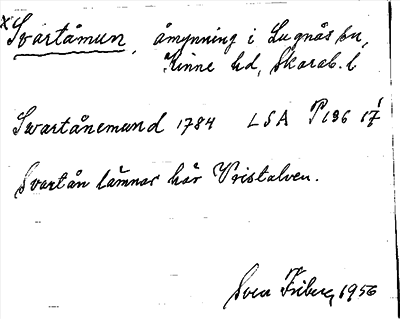 x Svartåmun, åmynning i Lugnås sn,
Kinne hd, Skarab. l
Svartånemund 1784 LSA P136 17 1
Svartån lämnar här Vristulven.
Sven Friberg 1956